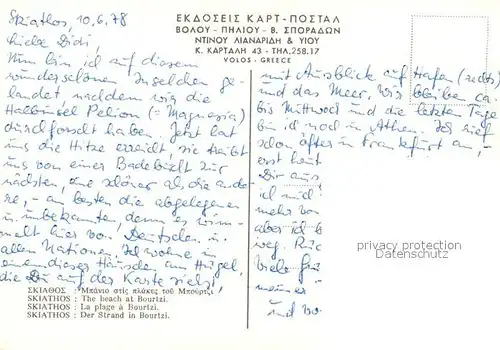 Skiathos, 10.6.78
Liebe Didi,
Nun bin ich auf diesem
wunderschönen Inselchen ge-
landet, nachdem wir die
Halbinsel Pelion (= Magnesia)
durchforscht haben. Jetzt hat
uns die Hitze ereilt, sie treibt
uns von einer Badebucht zur
nächsten, eine schöner als die ande-
re, - am besten die abgelegenen
u. unbekannten, denn es wim-
melt hier von Deutschen u.
allen Nationen. Ich wohne in
einem dieser Häuschen am Hügel,
die Du auf der Karte siehst,
ΣΚΙΑΘΟΣ : Μπάνιο στὶς πλάκες τοῦ Μπούρτζι
SKIATHOS : The beach at Bourtzi.
SKIATHOS : La plage à Bourtzi.
SKIATHOS : Der Strand in Bourtzi.
ΕΚΔΟΣΕΙΣ ΚΑΡΤ - ΠΟΣΤΑΛ
ΒΟΛΟΥ - ΠΗΛΙΟΥ - Β. ΣΠΟΡΑΔΩΝ
ΝΤΙΝΟΥ ΛΙΑΝΑΡΙΔΗ & ΥΙΟΥ
Κ. ΚΑΡΤΑΛΗ 43 - ΤΗΛ. 258.17
VOLOS - GREECE
mit Ausblick auf Hafen (rechts)
und das Meer, wir bleiben ca.
bis Mittwoch und die letzten Tage
bin ich noch in Athen. Ich rief
schon öfter in Frankfurt an,
erst heut
Dir aus
ich mich
mehr vo
aber ich
weg.
viele Grü
meiner
und vo
privacy protection
Datenschutz